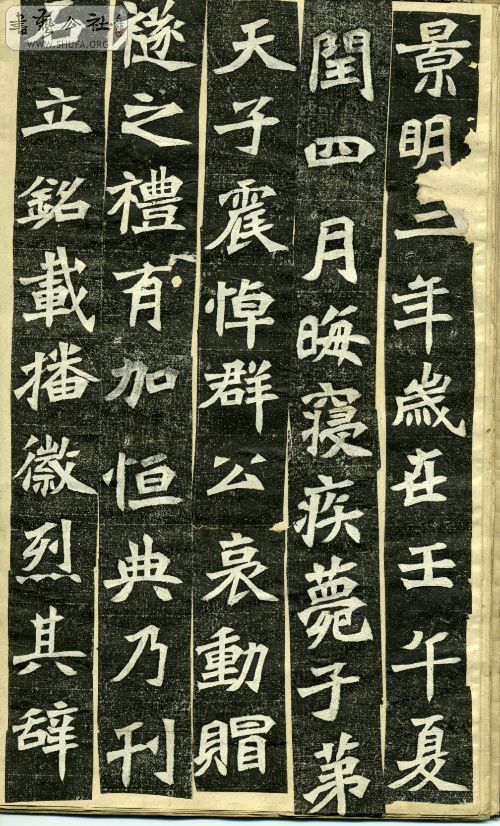 書藝公社
WWW.SHUFA.ORG
景明三年歲在壬午夏
閏四月晦寢疾薨子第
天子震悼群公哀動賵
襚之禮有加恒典乃刊
石立銘載播徽烈其辞